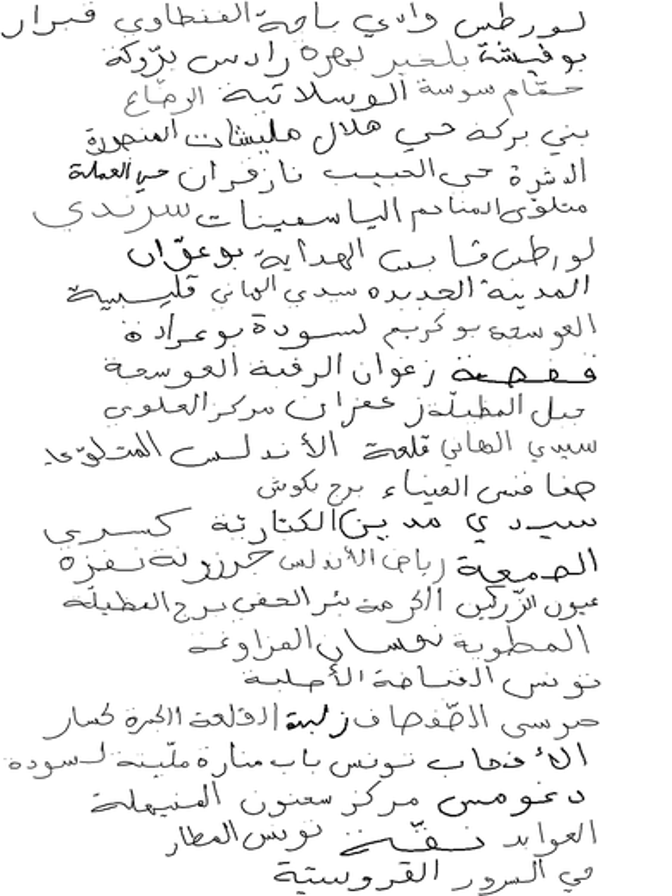 لورطس وادي باجة الفنطاوي قبرار
بوفيشة بلخير نهرة رادس برّوكة
حمّام سوسة الوسلاتية الرضاع
بني بركة حي هلال مليشات المنصورة
الدثرة حي الحبيب نازفران حي العملة
متلوي المناجم الياسمينات سرندي
لورطس قابس الهداية بوعقّان
المدينة الجديدة سيدي الهاني قليبية
العوسجة بوكريم لسودة بوعرادة
قفصة زغوان الرقبة العوسجة
جبل المظيلّة زعفران مركز العلوي
سيدي الهاني قلعة الأندلس المتلوي
صفاقس الميناء برج بكوش
سيدي مدين الكتارنة كسرى
الصمعية رياض الأندلس خرزونة نفزة
عيون الزركين الكرمة بئر الحفي برج المظيلّة
المطوية نحسان المزاوغة
تونس القناصة الأصلية
مرسى الصّفصاف زلبة القلعة الكبرة كسار
الأفحاب تونس باب منارة ملّينة لسودة
دغومس مركز سعنون المنيهلة
العوابد نفّة تونس المطار
حي السرور القروستية